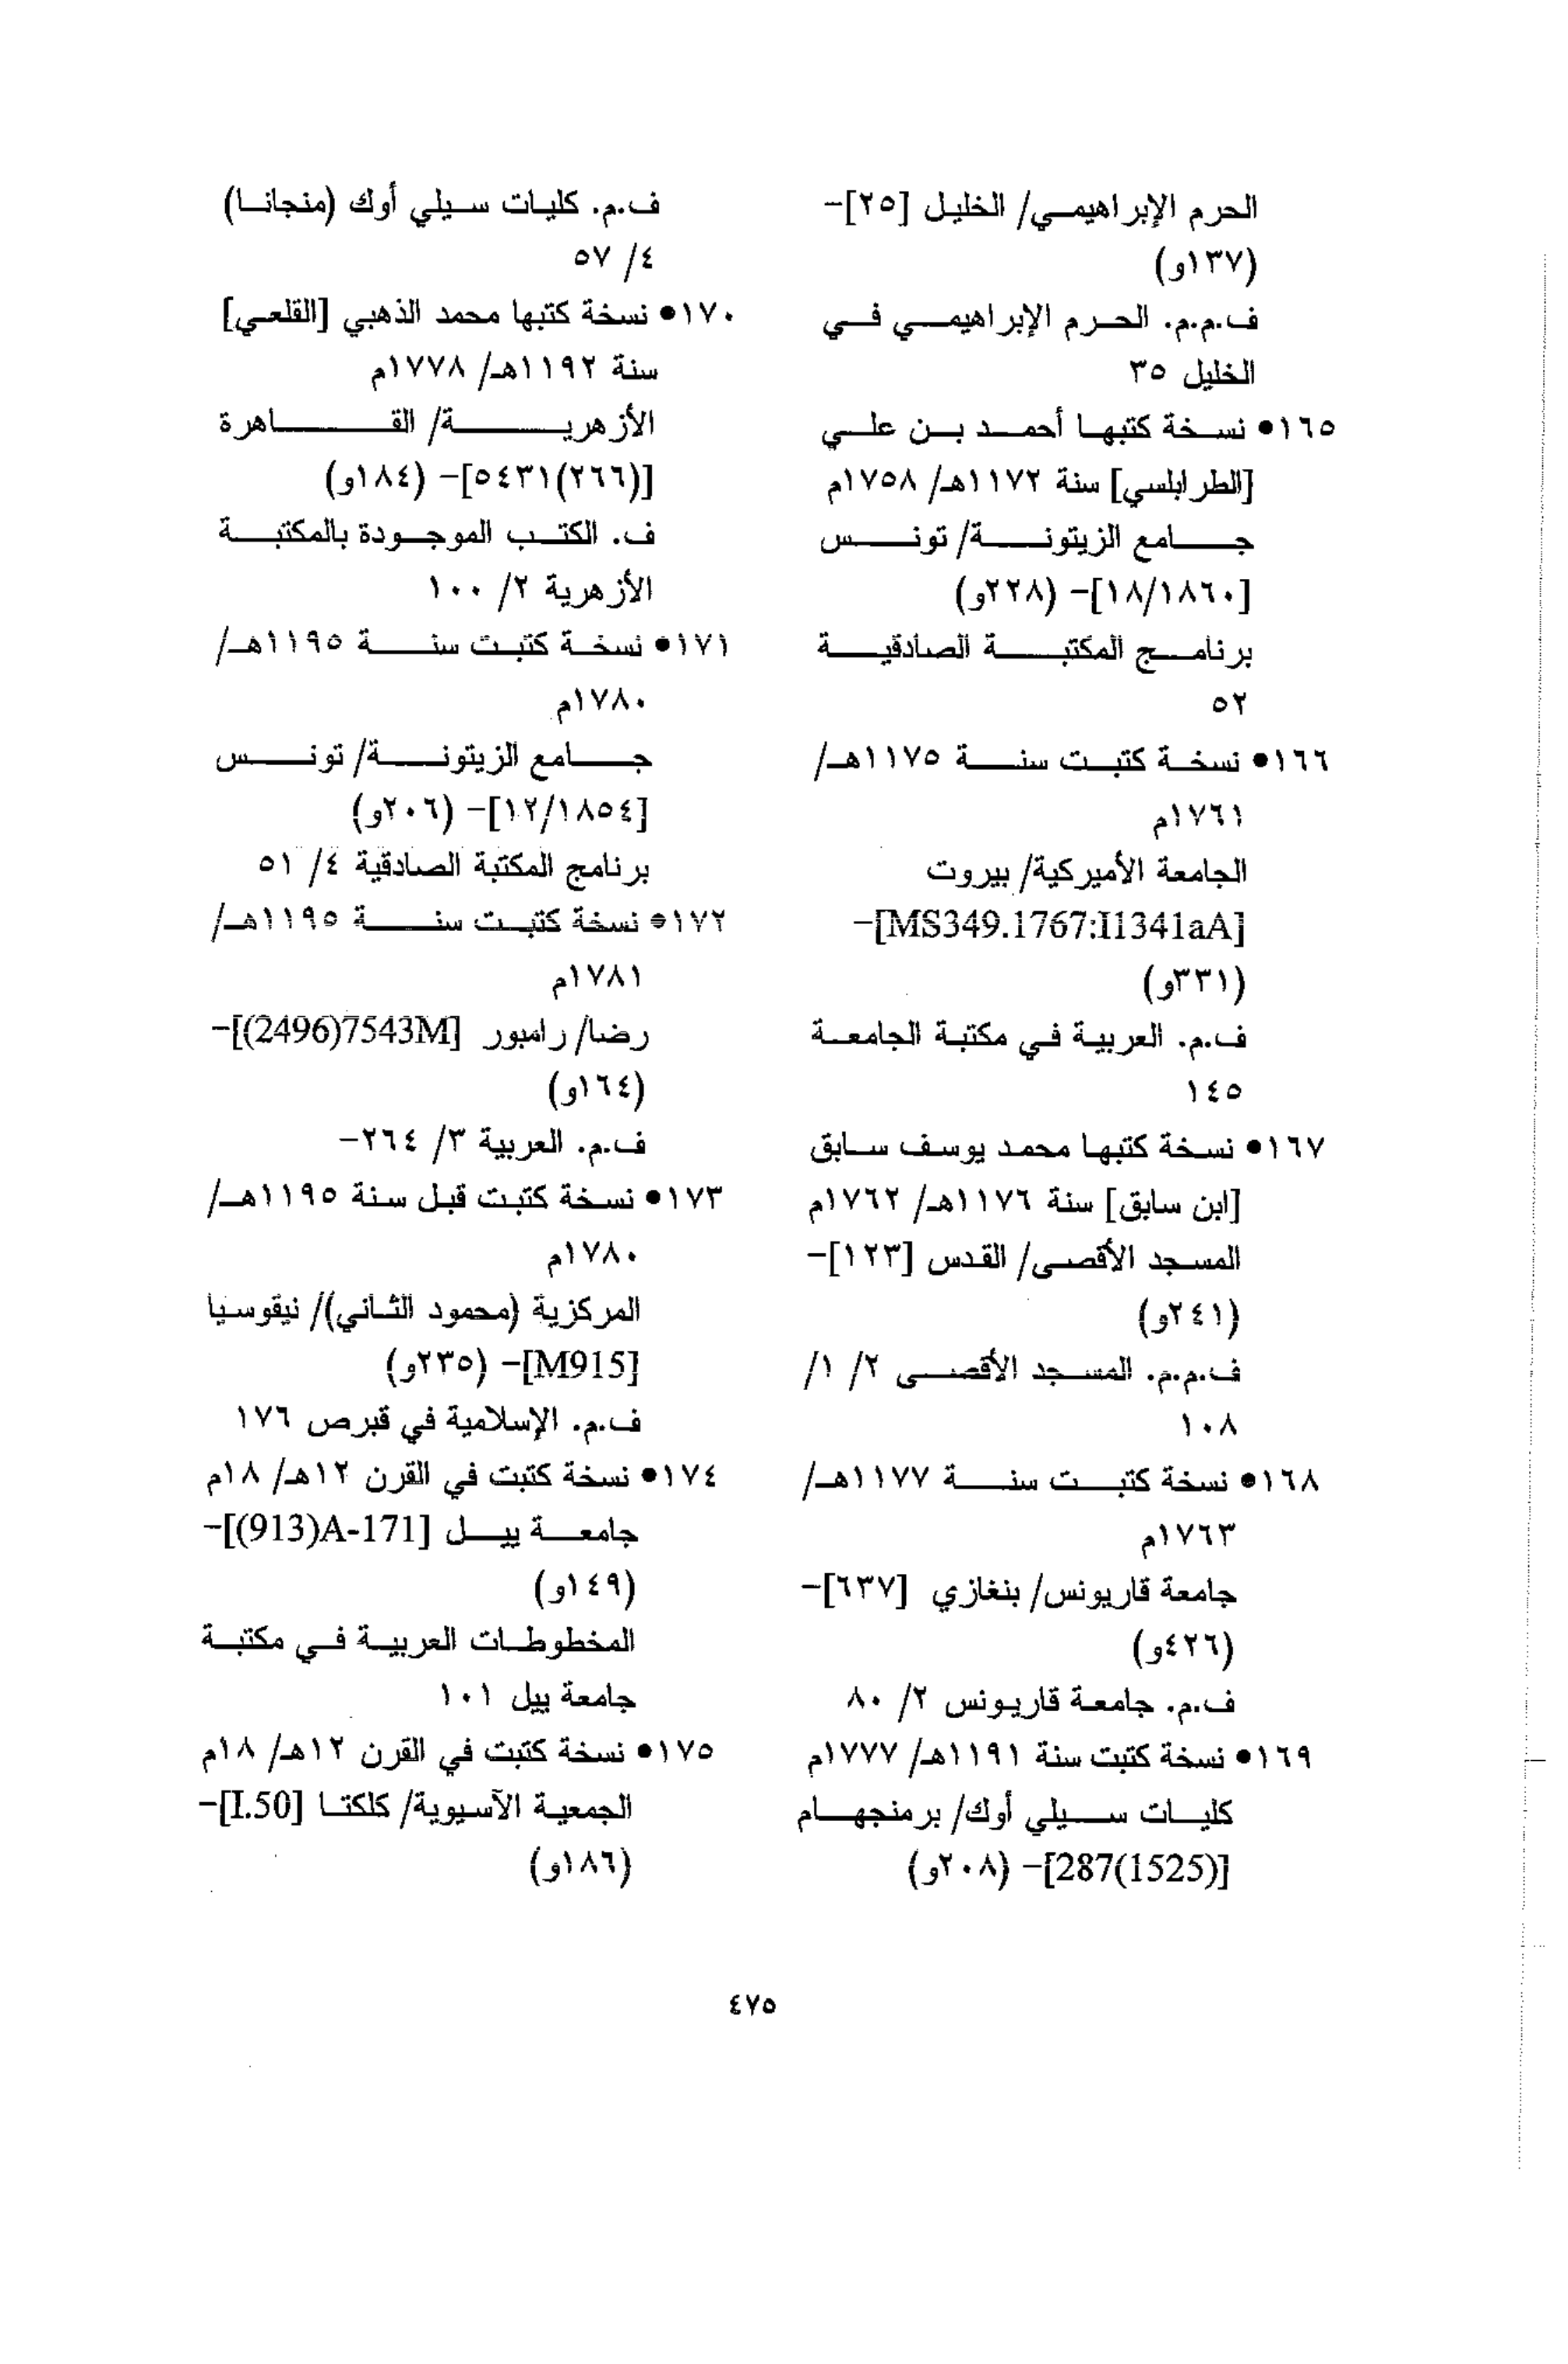 الحرم الإبراهيمي/ الخليل [٢٥]-
(١٣٧و)
ف.م.م. الحرم الإبراهيمي في
الخليل ٣٥
١٦٥• نسخة كتبها أحمد بن علي
[الطرابلسي] سنة ١١٧٢هـ/ ١٧٥٨م
جامع الزيتونة/ تونس
[١٨/١٨٦٠]- (٢٢٨و)
برنامج المكتبة الصادقية
٥٢
١٦٦• نسخة كتبت سنة ١١٧٥هـ/
١٧٦١م
الجامعة الأميركية/ بيروت
[MS349.1767:I1341aA]-
(٣٣١و)
ف.م. العربية في مكتبة الجامعة
١٤٥
١٦٧• نسخة كتبها محمد يوسف سابق
[ابن سابق] سنة ١١٧٦هـ/ ١٧٦٢م
المسجد الأقصى/ القدس [١٢٣]-
(٢٤١و)
ف.م.م. المسجد الأقصى ٢/ ١/
١٠٨
١٦٨• نسخة كتبت سنة ١١٧٧هـ/
١٧٦٣م
جامعة قاريونس/ بنغازي [٦٣٧]-
(٤٢٦و)
ف.م. جامعة قاريونس ٢/ ٨٠
١٦٩• نسخة كتبت سنة ١١٩١هـ/ ١٧٧٧م
كليات سيلي أوك/ برمنجهام
[287(1525)]- (٢٠٨و)
ف.م. كليات سيلي أوك (منجانا)
٤/ ٥٧
١٧٠• نسخة كتبها محمد الذهبي [القلعي]
سنة ١١٩٢هـ/ ١٧٧٨م
الأزهرية/ القاهرة
[(٢٦٦)٥٤٣١]- (١٨٤و)
ف. الكتب الموجودة بالمكتبة
الأزهرية ٢/ ١٠٠
١٧١• نسخة كتبت سنة ١١٩٥هـ/
١٧٨٠م
جامع الزيتونة/ تونس
[١٢/١٨٥٤]- (٢٠٦و)
برنامج المكتبة الصادقية ٤/ ٥١
١٧٢• نسخة كتبت سنة ١١٩٥هـ/
١٧٨١م
رضا/ رامبور [(2496)7543M]-
(١٦٤و)
ف.م. العربية ٣/ ٢٦٤-
١٧٣• نسخة كتبت قبل سنة ١١٩٥هـ/
١٧٨٠م
المركزية (محمود الثاني)/ نيقوسيا
[M915]- (٢٣٥و)
ف.م. الإسلامية في قبرص ١٧٦
١٧٤• نسخة كتبت في القرن ١٢هـ/ ١٨م
جامعة ييل [(913)A-171]-
(١٤٩و)
المخطوطات العربية في مكتبة
جامعة ييل ١٠١
١٧٥• نسخة كتبت في القرن ١٢هـ/ ١٨م
الجمعية الآسيوية/ كلكتا [I.50]-
(١٨٦و)
٤٧٥